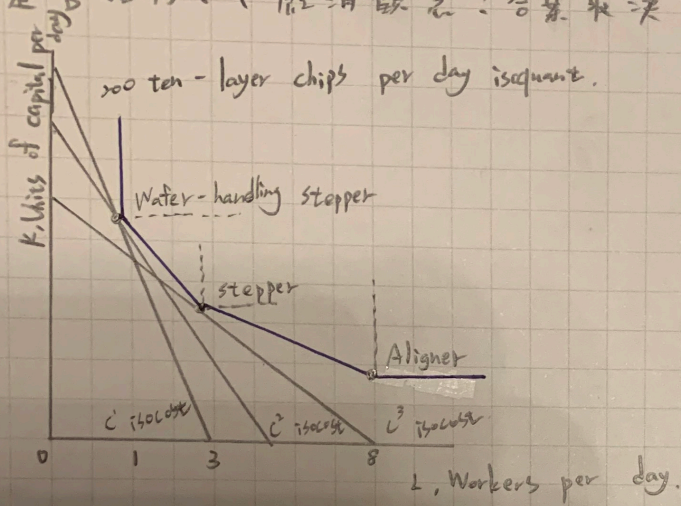 K, Units of capital per day
200 ten-layer chips per day isoquant.
Wafer-handling stepper
stepper
Aligner
C¹ isocost
C² isocost
C³ isocost
0 1 3 8
L, Workers per day.